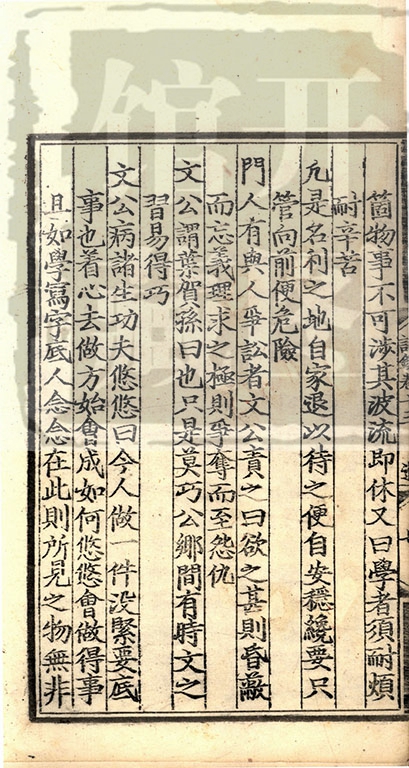 箇物事不可涉其波流即休又曰學者須耐煩
耐辛苦
凡是名利之地自家退以待之便自安穩纔要只
管向前便危險
門人有與人爭訟者文公責之曰欲之甚則昏蔽
而忘義理求之極則爭奪而至怨仇
文公謂葉賀孫曰也只是莫巧公鄉間有時文之
習易得巧
文公病諸生功夫悠悠曰今人做一件沒緊要底
事也着心去做方始會成如何悠悠會做得事
且如學寫字底人念念在此則所見之物無非